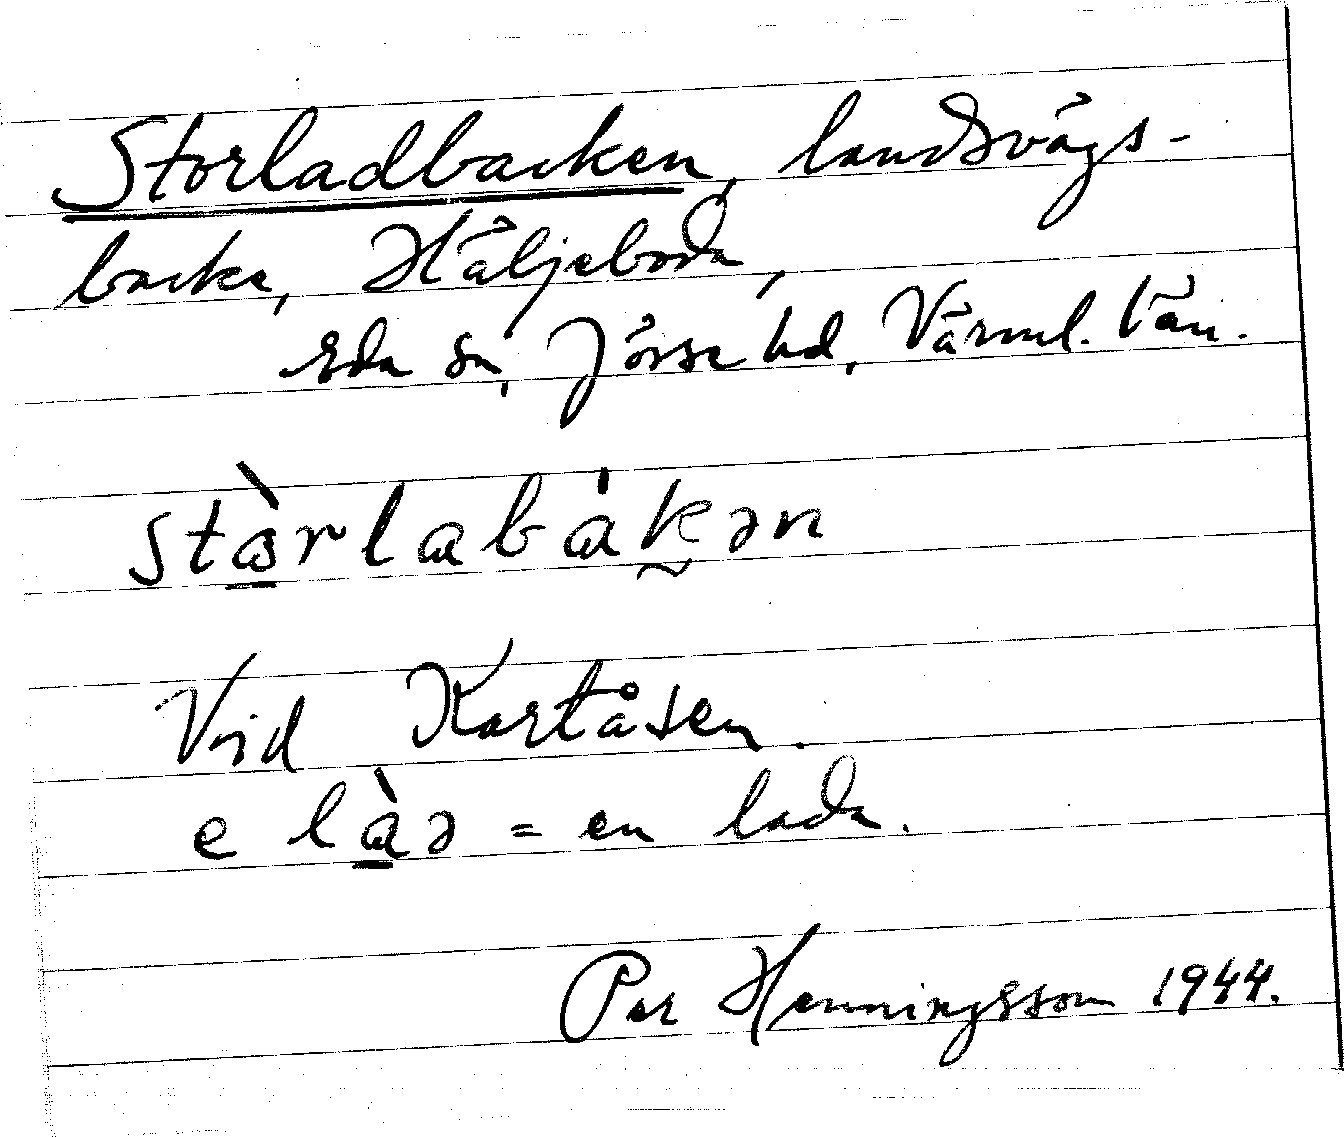 Storladbacken, landsvägs-
backe, Häljeboda,
Eda sn, Jösse hd, Värml. län.
stɷ̀rlabákən
Vid Kartåsen.
e làə = en lada.
Per Henningsson 1944.